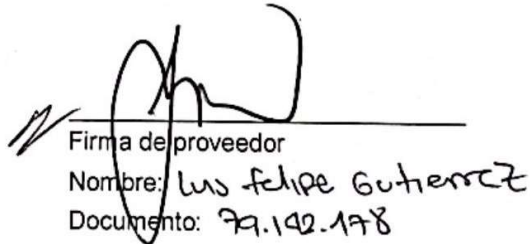 Firma de proveedor
Nombre: Luis felipe Gutierrez
Documento: 79.142.178